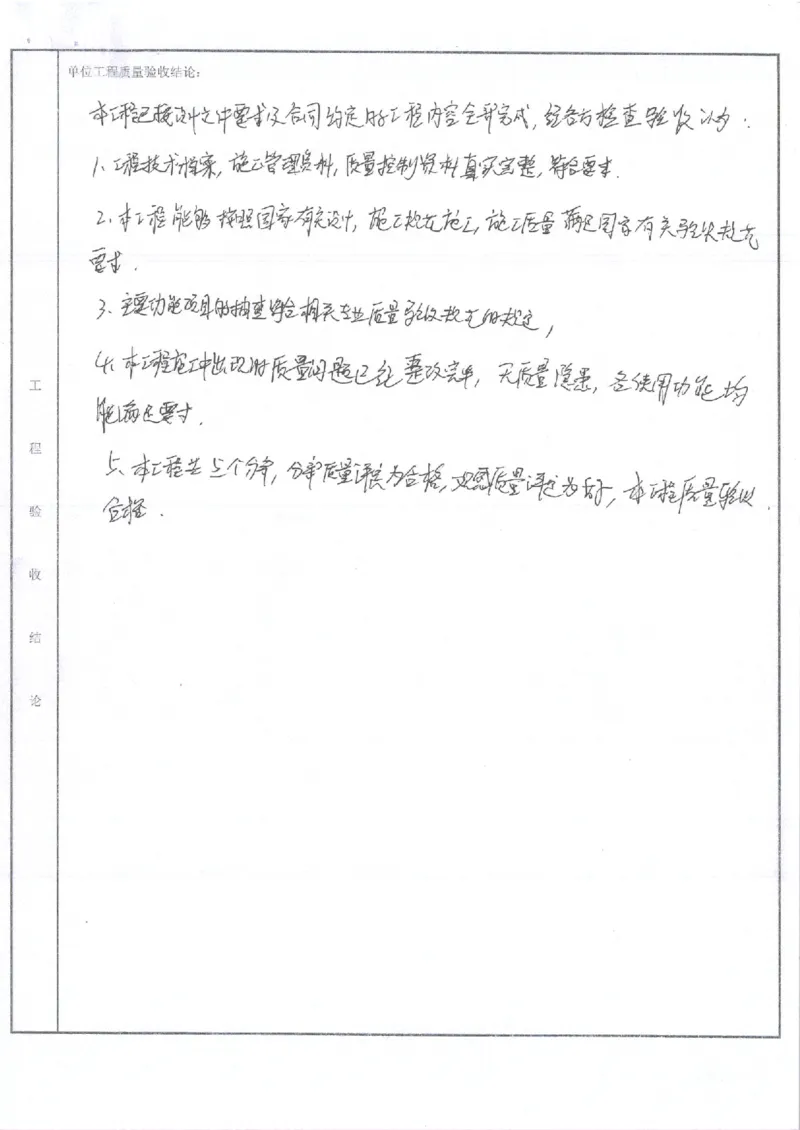 单位工程质量验收结论:
本工程已按设计文件要求及合同约定的工程内容全部完成,经各方检查验收认为:
1、工程技术档案,施工管理资料,质量控制资料真实完整,符合要求.
2、本工程能够按照国家有关设计,施工规范施工,施工质量满足国家有关验收规范
要求.
3、主要功能项目的抽查符合相关专业质量验收规范的规定,
4、本工程施工中出现的质量问题已经整改完毕,无质量隐患,各使用功能均
能满足要求.
5、本工程共5个分部,分部质量评定为合格,观感质量评定为好,本工程质量验收
合格.
工程验收结论